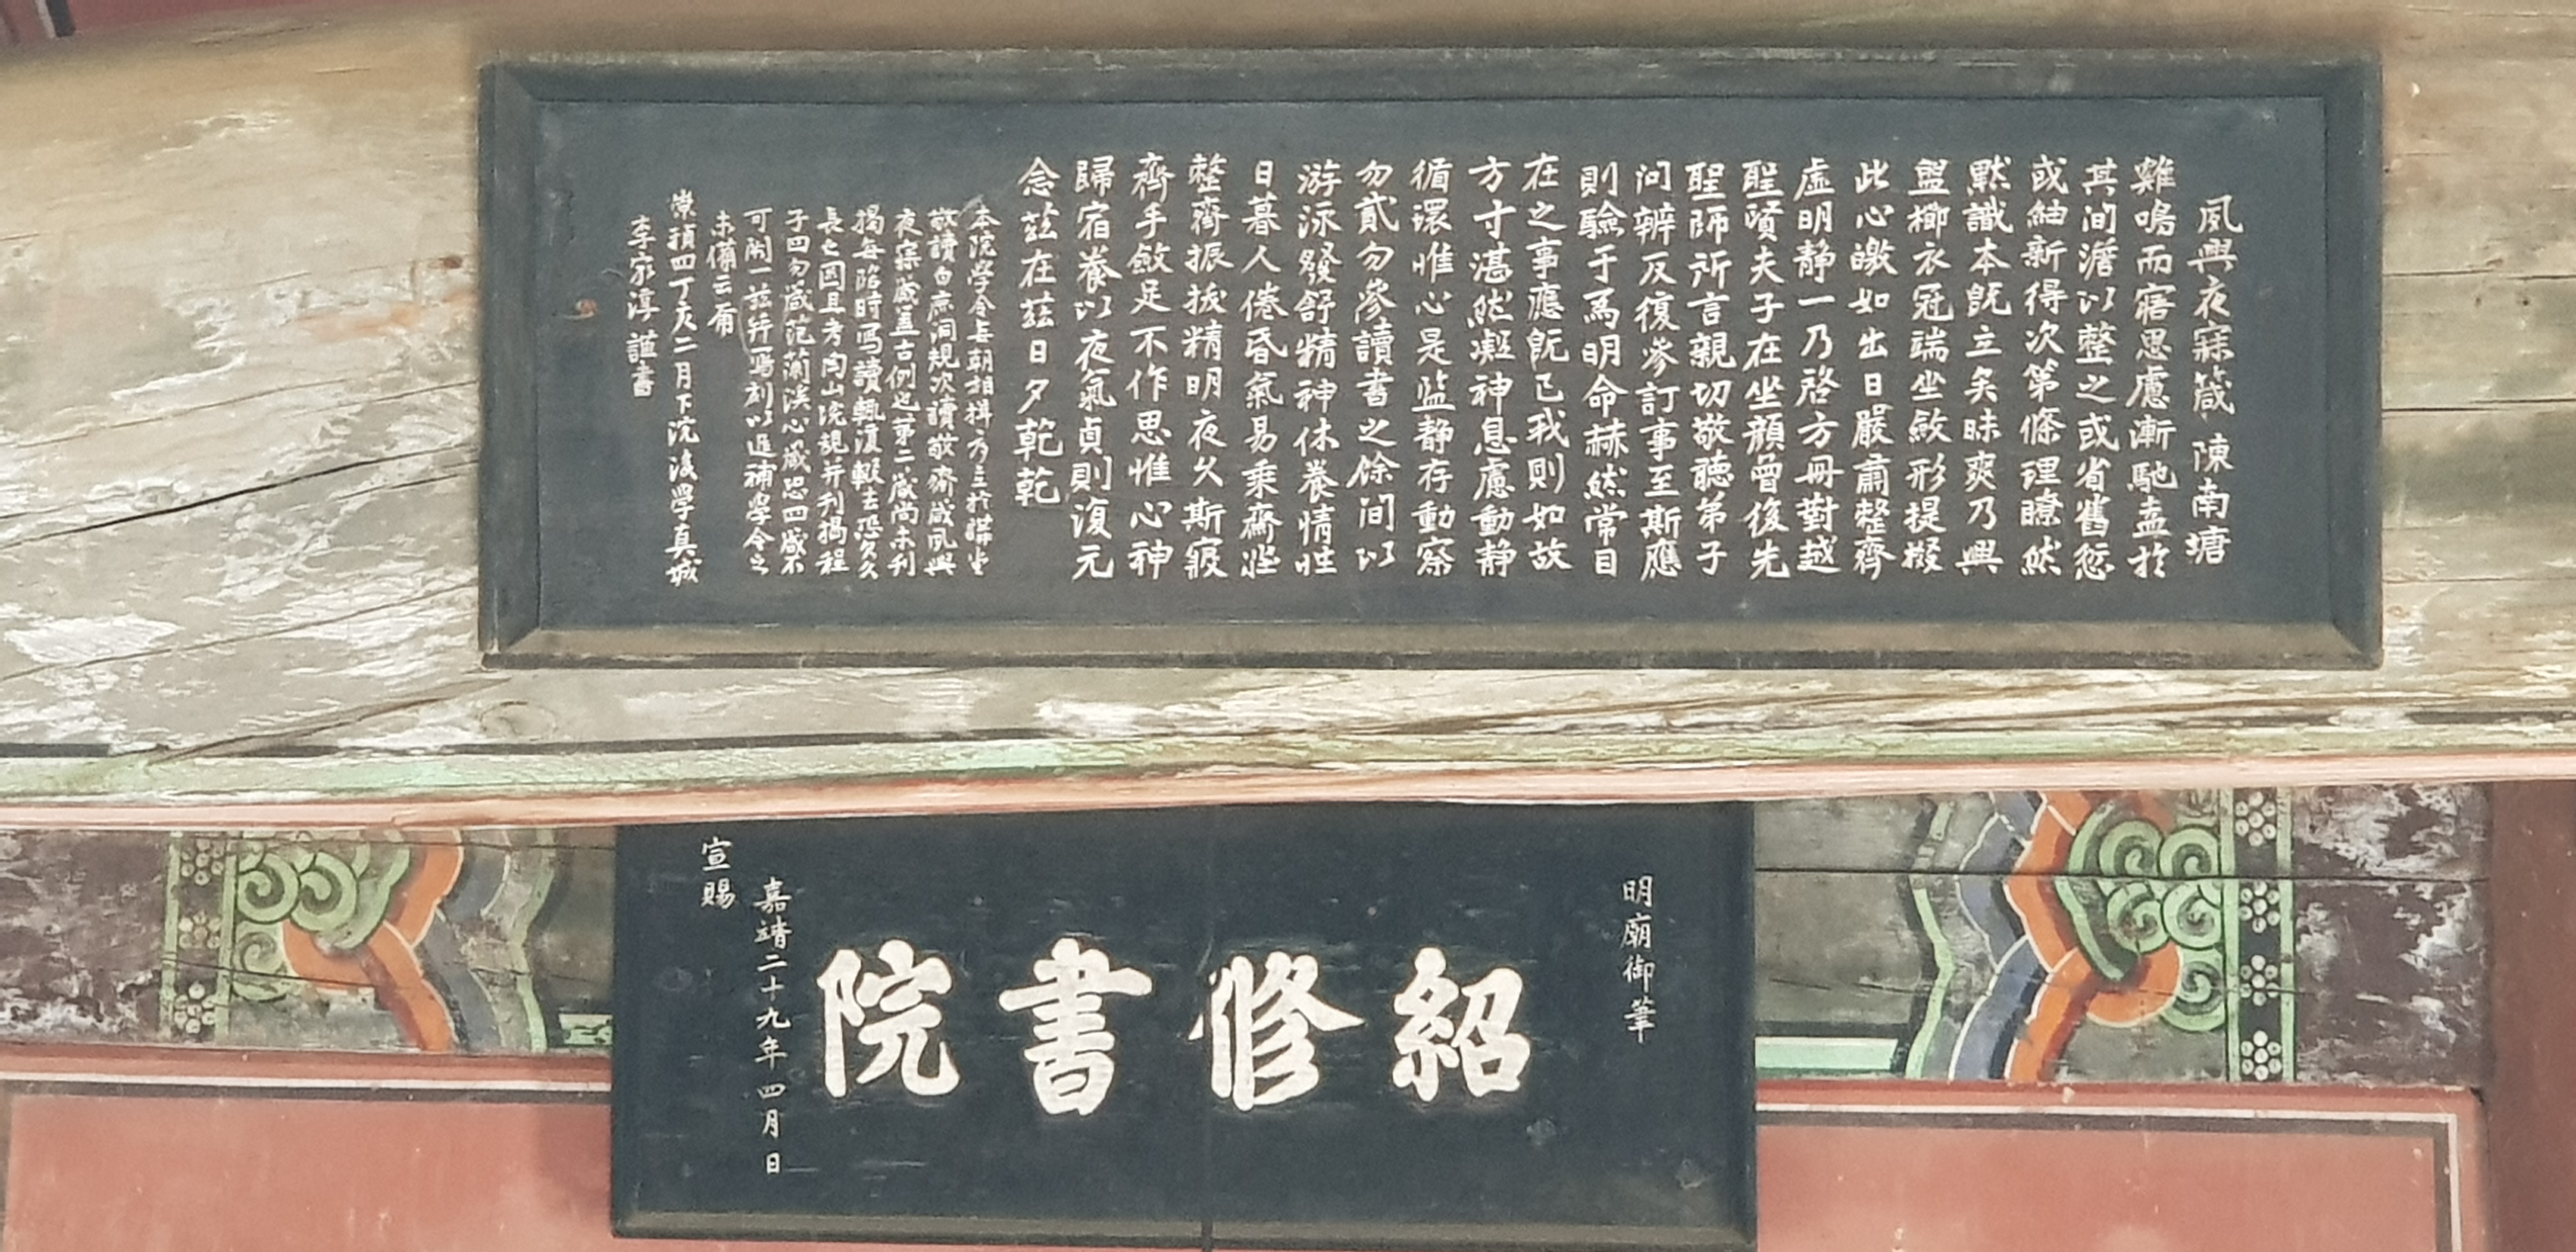 夙興夜寐箴 陳南塘
雞鳴而寤思慮漸馳盍於
其間澹以整之或省舊愆
或紬新得次第條理瞭然
默識本旣立矣昧爽乃興
盥櫛衣冠端坐斂形提掇
此心皦如出日嚴肅整齊
虛明靜一乃啓方冊對越
聖賢夫子在坐顔曾後先
聖師所言親切敬聽弟子
问辨反復參訂事至斯應
則驗于爲明命赫然常目
在之事應旣已我則如故
方寸湛然凝神息慮動靜
循環惟心是监靜存動察
勿貳勿參讀書之餘间以
游泳發舒精神休養情性
日暮人倦昏氣易乘齋莊
整齊振拔精明夜久斯寢
齊手斂足不作思惟心神
歸宿養以夜氣貞則復元
念茲在茲日夕乾乾
本院學令每朝相揖乃立於講堂
敬讀白鹿洞規次讀敬齋箴夙興
夜寐箴盖古例也第二箴尚未刊
揭每臨時寫讀輒渡輟去恐久久
長之因且考陶山院規并刊揭程
子四勿箴范蘭溪心箴恐四箴不
可闕一茲并寫刻以追補學令之
未備云爾
崇禎四丁亥二月下浣後學真城
李家淳 謹書
明廟御筆
紹修書院
嘉靖二十九年四月 日
宣賜